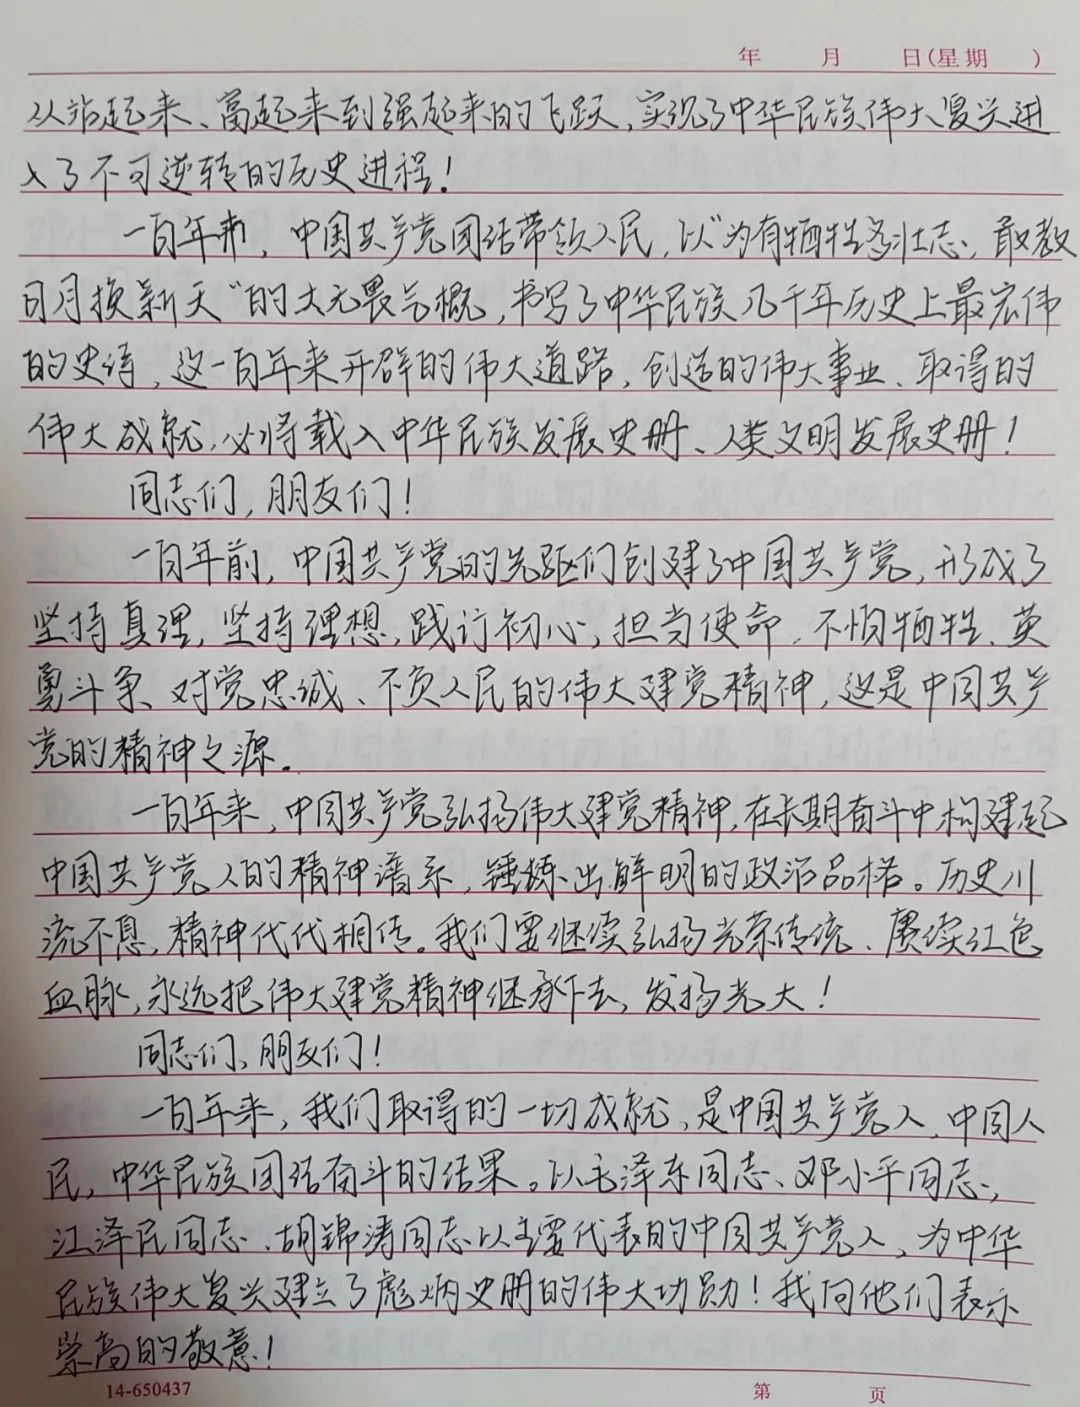 年 月 日(星期 )
从站起来、富起来到强起来的飞跃,实现了中华民族伟大复兴进
入了不可逆转的历史进程!
一百年来,中国共产党团结带领人民,以“为有牺牲多壮志,敢教
日月换新天”的大无畏气概,书写了中华民族几千年历史上最宏伟
的史诗,这一百年来开辟的伟大道路,创造的伟大事业、取得的
伟大成就,必将载入中华民族发展史册、人类文明发展史册!
同志们,朋友们!
一百年前,中国共产党的先驱们创建了中国共产党,形成了
坚持真理,坚持理想,践行初心,担当使命,不怕牺牲、英
勇斗争、对党忠诚、不负人民的伟大建党精神,这是中国共产
党的精神之源。
一百年来,中国共产党弘扬伟大建党精神,在长期奋斗中构建起
中国共产党人的精神谱系,锤炼出鲜明的政治品格。历史川
流不息,精神代代相传。我们要继续弘扬光荣传统、赓续红色
血脉,永远把伟大建党精神继承下去,发扬光大!
同志们,朋友们!
一百年来,我们取得的一切成就,是中国共产党人、中国人
民,中华民族团结奋斗的结果。以毛泽东同志、邓小平同志,
江泽民同志、胡锦涛同志以主要代表的中国共产党人,为中华
民族伟大复兴建立了彪炳史册的伟大功勋!我向他们表示
崇高的敬意!
14-650437 第 页